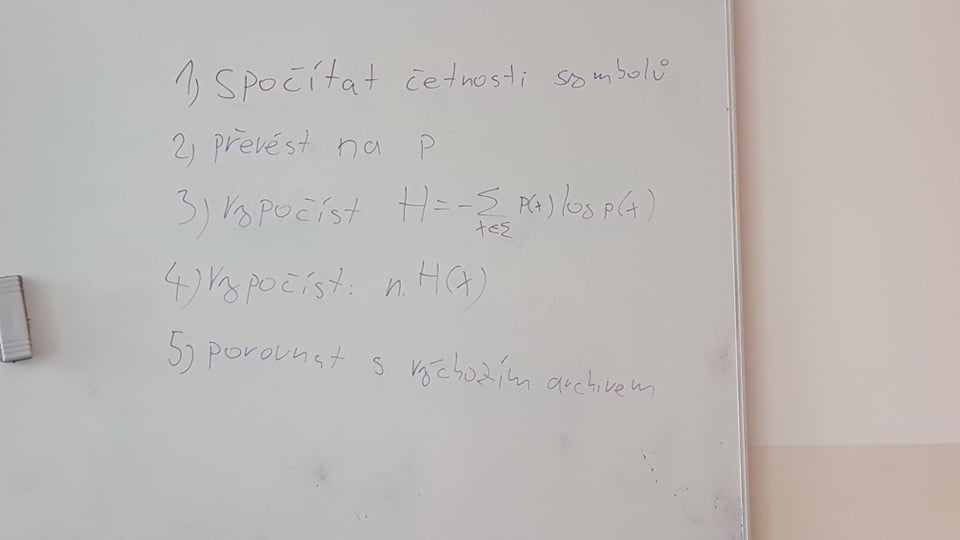 1) Spočítat četnosti symbolů
2) převést na p
3) Vypočíst H = - ∑ p(x) log p(x)
x∈Σ
4) Vypočíst: n. H(x)
5) porovnat s výchozím archivem